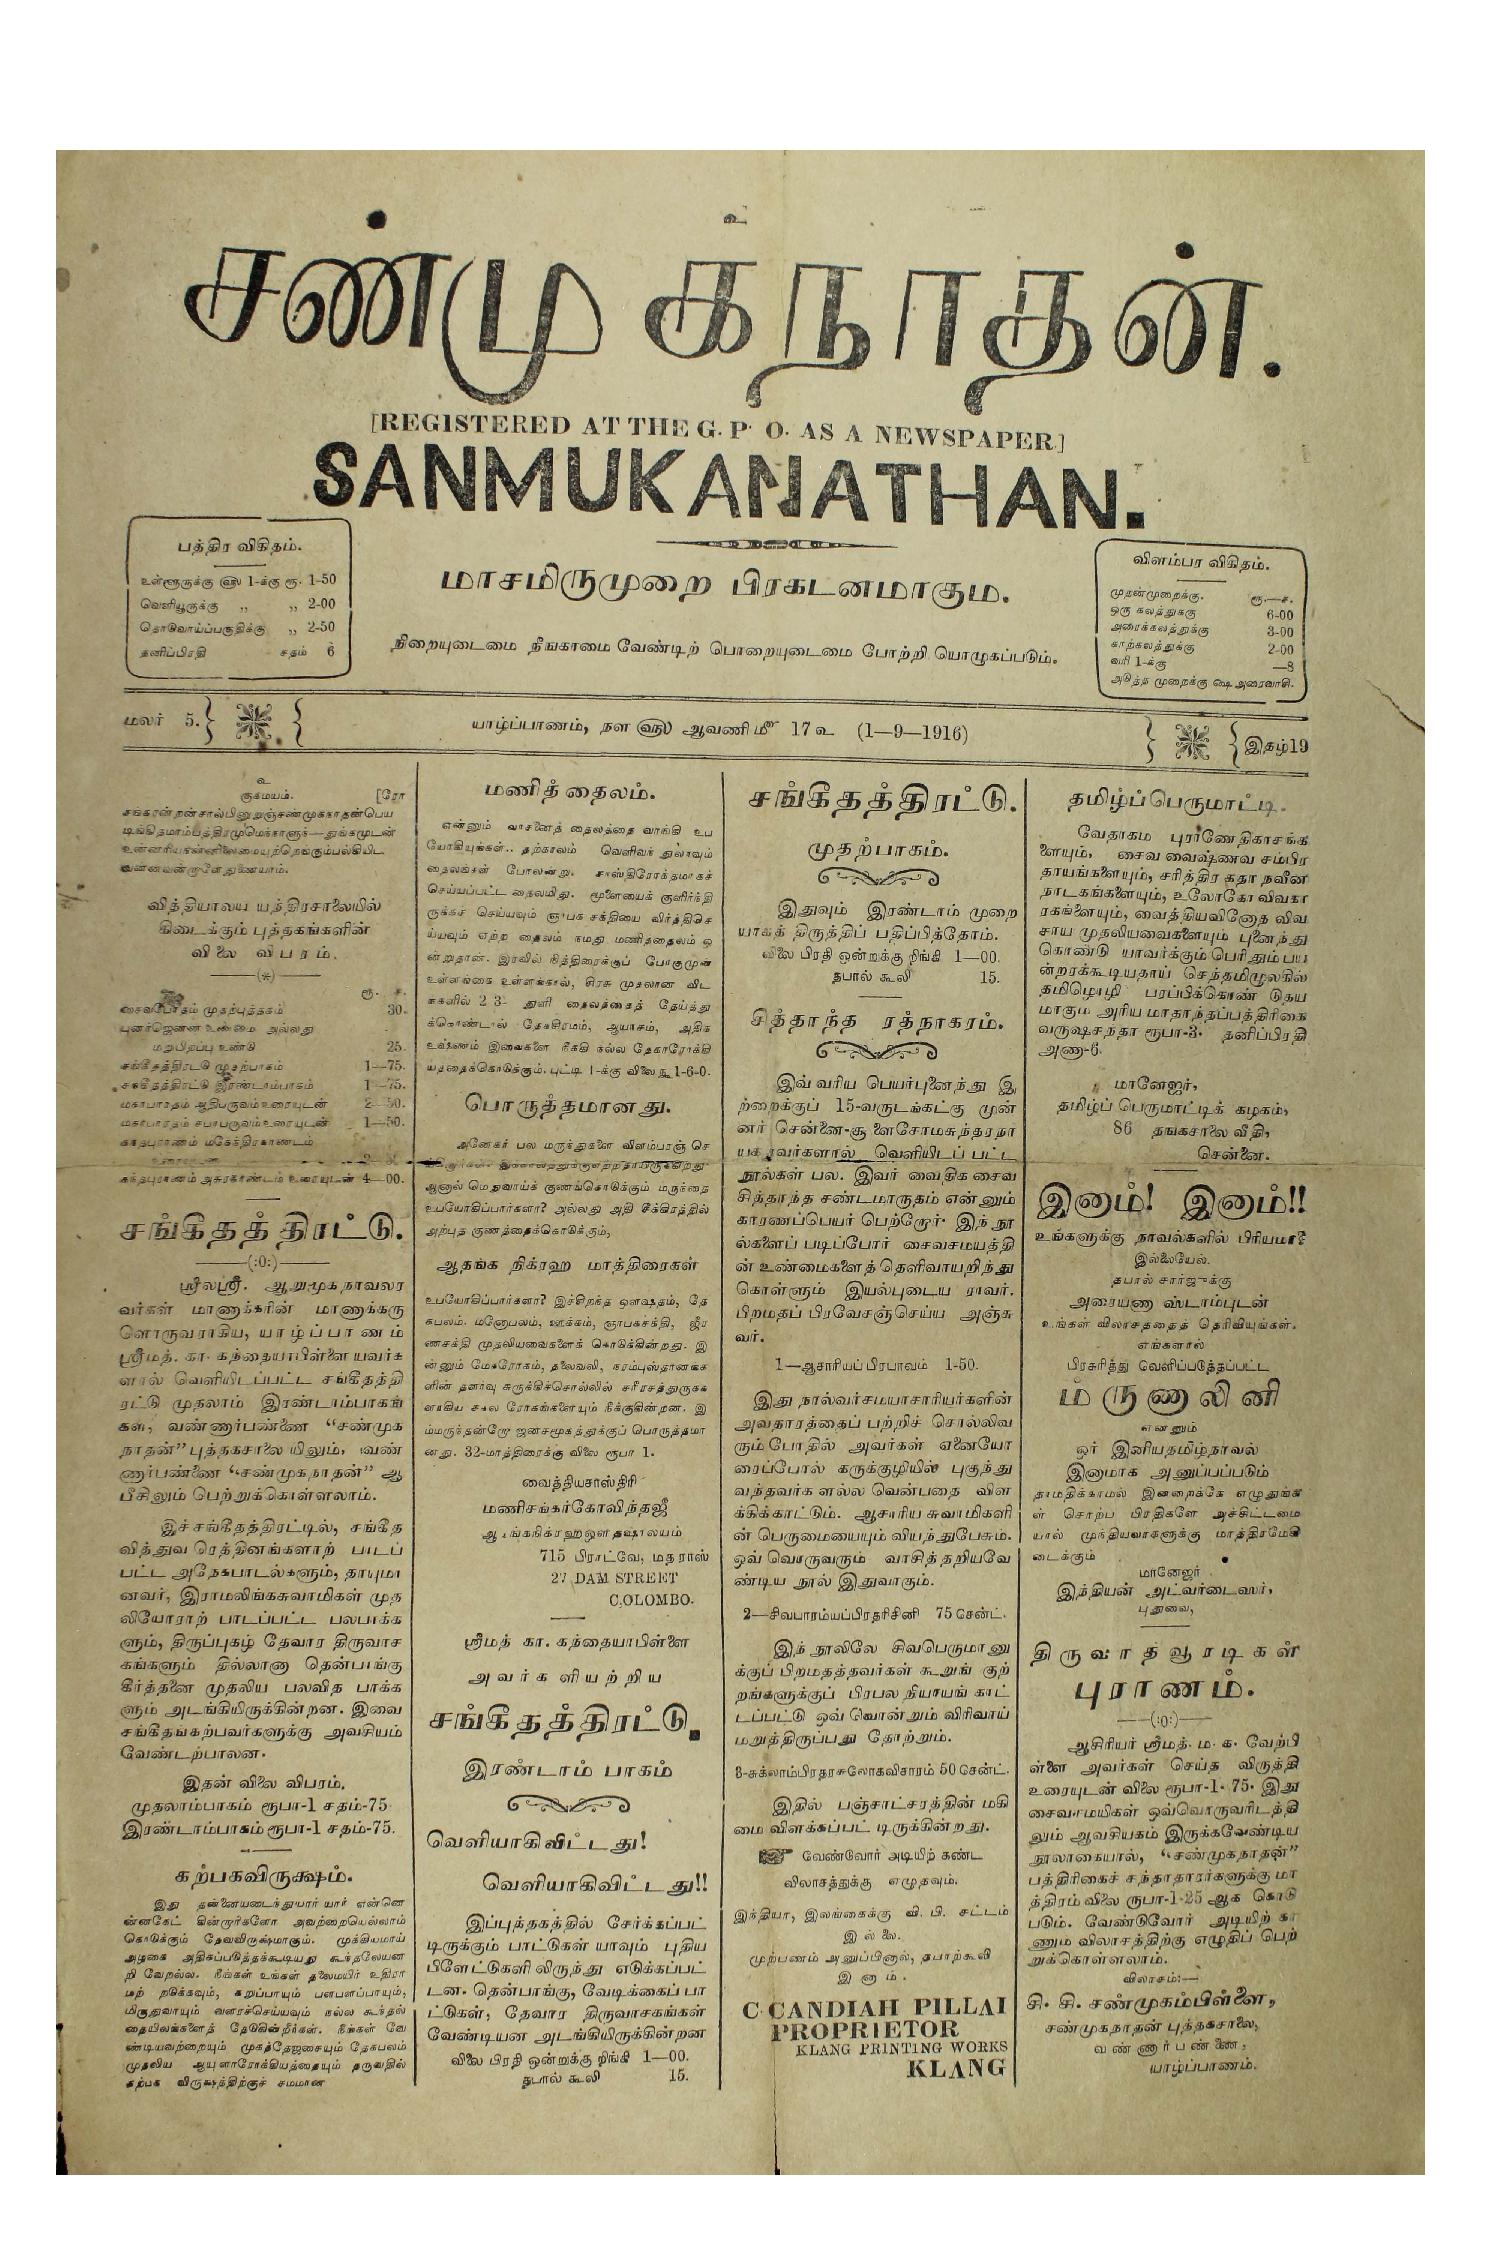 உ
சண்முகநாதன்.
[REGISTERED AT THE G. P. O. AS A NEWSPAPER]
SANMUKANATHAN.
பத்திர விகிதம்.
உள்ளூருக்கு ௵ 1-க்கு ரூ. 1-50
வெளியூருக்கு ,, ,, 2-00
தொடுவாய்ப்பகுதிக்கு ,, 2-50
தனிப்பிரதி சதம் 6
மாசமிருமுறை பிரகடனமாகும.
நிறையுடைமை நீங்காமை வேண்டிற் பொறையுடைமை போற்றி யொழுகப்படும்.
விளம்பர விகிதம்.
முதன்முறைக்கு. ரூ.—ச.
ஒரு கலத்துககு 6-00
அரைக்கலத்துக்கு 3-00
காற்கலத்துக்கு 2-00
வரி 1-க்கு —8
அடுத்த முறைக்கு ௸ அரைவாசி.
மலர் 5.
யாழ்ப்பாணம், நள ௵ ஆவணி மீ 17 உ (1—9—1916)
இதழ் 19
உ
குகமயம். [ரோ
வித்தியாலய யந்திரசாலையில்
கிடைக்கும் புத்தகங்களின்
விலை விபரம்.
—(*)—
ரூ. ச.
சைவபோதம் முதற்புத்தகம் 30.
புனர்ஜென்ன உண்மை அல்லது
மறுபிறப்பு உண்டு 25.
சங்கீதத்திரட்டு முதற்பாகம் 1—75.
சங்கீதத்திரட்டு இரண்டாம்பாகம் 1—75.
மகாபாரதம் ஆதிபருவம் உரையுடன் 2—50.
மகாபாரதம் சபாபருவம் உரையுடன் 1—50.
கந்தபுராணம் மகேந்திரகாண்டம்
கந்தபுராணம் அசுரகாண்டம் உரையுடன் 4—00.
சங்கீதத்திரட்டு.
—(:0:)—
ஸ்ரீலஸ்ரீ. ஆறுமுக நாவலர
வர்கள் மாணாக்கரின் மாணாக்கரு
ளொருவராகிய, யாழ்ப்பாணம்
ஸ்ரீமத். கா. கந்தையாபிள்ளை யவர்க
ளால் வெளியிடப்பட்ட சங்கீதத்தி
ரட்டு முதலாம் இரண்டாம்பாகங்
கள், வண்ணார்பண்ணை “சண்முக
நாதன்” புத்தகசாலை யிலும், வண்
ணார்பண்ணை “சண்முகநாதன்” ஆ
பீசிலும் பெற்றுக்கொள்ளலாம்.
இச் சங்கீதத்திரட்டில், சங்கீத
வித்துவ ரெத்தினங்களாற் பாடப்
பட்ட அநேகபாடல்களும், தாயுமா
னவர், இராமலிங்கசுவாமிகள் முத
லியோராற் பாடப்பட்ட பலபாக்க
ளும், திருப்புகழ் தேவார திருவாச
கங்களும் தில்லானா தென்பாங்கு
கீர்த்தனை முதலிய பலவித பாக்க
ளும் அடங்கியிருக்கின்றன. இவை
சங்கீதங்கற்பவர்களுக்கு அவசியம்
வேண்டற்பாலன.
இதன் விலை விபரம்.
முதலாம்பாகம் ரூபா-1 சதம்-75
இரண்டாம்பாகம் ரூபா-1 சதம்-75.
கற்பகவிருக்ஷம்.
இது தன்னையடைந்து யார் யார் என்னெ
ன்னகேட் கின்றார்களோ அவற்றையெல்லாம்
கொடுக்கும் தேவவிருக்ஷமாகும். முக்கியமாய்
அழகை அதிகப்படுத்தக்கூடியது கூந்தலேயன
றி வேறல்ல. நீங்கள் உங்கள் தலைமயிர் உதிரா
மற் றடுக்கவும், கறுப்பாயும் பளபளப்பாயும்,
மிருதுவாயும் வளரச்செய்யவும் நல்ல கூந்தல்
தையிலங்களைத் தேடுகின்றீர்கள். நீங்கள் வே
ண்டியவற்றையும் முகத்தேஜசையும் தேகபலம்
முதலிய ஆயுளாரோக்கியத்தையும் தருவதில்
கற்பக விருக்ஷத்திற்குச் சமமான
மணித் தைலம்.
என்னும் வாசனைத் தைலத்தை வாங்கி உப
யோகியுங்கள்.. தற்காலம் வெளிவர் துலாவும்
தைலங்கள் போலன்று. சாஸ்திரோக்தமாகச்
செய்யப்பட்ட தைலமிது. மூளையைக் குளிர்ந்தி
ருக்கச் செய்யவும் ஞாபக சக்தியை விர்த்திசெ
ய்யவும் ஏற்ற தைலம் நமது மணிததைலம் ஒ
ன்றுதான். இரவில் நித்திரைக்குப் போகுமுன்
உள்ளங்கை உள்ளங்கால், சிரசு முதலான விட
ங்களில் 2 3- துளி தைலத்தைத் தேய்த்து
க்கொண்டால் தேகசிரமம், ஆயாசம், அதிக
உஷ்ணம் இவைகளை நீக்கி நல்ல தேகாரோக்கி
யத்தைக்கொடுக்கும். புட்டி 1-க்கு விலை ரூ 1-6-0.
பொருத்தமானது.
அனேகர் பல மருந்துகளை விளம்பரஞ் செ
ஆனால் மெதுவாய்க் குணங்கொடுக்கும் மருந்தை
உபயோகிப்பார்களா? அல்லது அதி சீக்கிரத்தில்
அற்புத குணத்தைக்கொடுக்கும்,
ஆதங்க நிக்ரஹ மாத்திரைகள்
உபயோகிப்பார்களா? இச்சிறந்த ஔஷதம், தே
கபலம். மனோபலம், ஊக்கம், ஞாபகசக்தி, ஜீர
ணசக்தி முதலியவைகளைக் கொடுக்கின்றது. இ
ன்னும் மேகரோகம், தலைவலி, நரம்புஸ்தானங்க
ளின் தளர்வு சுருக்கிச்சொல்லில் சரீரசத்துருகக
ளாகிய சகல ரோகங்களையும் நீக்குகின்றன. இ
ம்மருந்தன்றோ ஜனசமூகத்துக்குப் பொருத்தமா
னது. 32-மாத்திரைக்கு விலை ரூபா 1.
வைத்தியசாஸ்திரி
மணிசங்கர்கோவிந்தஜீ
ஆதங்கநிக்ரஹஔதஷாலயம்
715 பிராட்வே, மதராஸ்
27 DAM STREET
COLOMBO.
ஸ்ரீமத் கா. கந்தையாபிள்ளை
அவர்களியற்றிய
சங்கீதத்திரட்டு.
இரண்டாம் பாகம்
வெளியாகிவிட்டது!
வெளியாகிவிட்டது!!
இப்புத்தகத்தில் சேர்க்கப்பட்
டிருக்கும் பாட்டுகள் யாவும் புதிய
பிளேட்டுகளி லிருந்து எடுக்கப்பட்
டன. தென்பாங்கு, வேடிக்கைப் பா
ட்டுகள், தேவார திருவாசகங்கள்
வேண்டியன அடங்கியிருக்கின்றன
விலை பிரதி ஒன்றுக்கு றிங்கி 1—00.
தபால் கூலி 15.
சங்கீதத்திரட்டு.
முதற்பாகம்.
இதுவும் இரண்டாம் முறை
யாகத் திருத்திப் பதிப்பித்தோம்.
விலை பிரதி ஒன்றக்கு றிங்கி 1—00.
தபால் கூலி 15.
சித்தாந்த ரத்நாகரம்.
இவ் வரிய பெயர்புனைந்து இ
ற்றைக்குப் 15-வருடங்கட்கு முன்
னர் சென்னை-சூளைசோமசுந்தரநா
யகரவர்களால் வெளியிடப் பட்ட
நூல்கள் பல. இவர் வைதிக சைவ
சித்தாந்த சண்டமாருதம் என்னும்
காரணப்பெயர் பெற்றோர். இந் நூ
ல்களைப் படிப்போர் சைவசமயத்தி
ன் உண்மைகளைத் தெளிவாயறிந்து
கொள்ளும் இயல்புடைய ராவர்.
பிறமதப் பிரவேசஞ்செய்ய அஞ்சு
வர்.
1—ஆசாரியப் பிரபாவம் 1-50.
இது நால்வர்சமயாசாரியர்களின்
அவதாரத்தைப் பற்றிச் சொல்லிவ
ரும்போதில் அவர்கள் ஏனையோ
ரைப்போல் கருக்குழியில் புகுந்து
வந்தவர்க ளல்ல வென்பதை விள
க்கிக்காட்டும். ஆசாரிய சுவாமிகளி
ன் பெருமையையும் வியந்துபேசும்.
ஒவ் வொருவரும் வாசித்தறியவே
ண்டிய நூல் இதுவாகும்.
2—சிவபாரம்யப்பிரதரிசினி 75 சென்ட்.
இந் நூலிலே சிவபெருமானு
க்குப் பிறமதத்தவர்கள் கூறுங் குற்
றங்களுக்குப் பிரபல நியாயங் காட்
டப்பட்டு ஒவ் வொன்றும் விரிவாய்
மறுத்திருப்பது தோற்றும்.
3-சுக்லாம்பிரதரசுலோகவிசாரம் 50 சென்ட்.
இதில் பஞ்சாட்சரத்தின் மகி
மை விளக்கப்பட் டிருக்கின்றது.
வேண்வோர் அடியிற் கண்ட
விலாசத்துக்கு எழுதவும்.
இந்தியா, இலங்கைக்கு வி. பி. சட்டம்
இல்லை.
முற்பணம் அனுப்பினால், தபாற்கூலி
இனாம்.
C. CANDIAH PILLAI
PROPRIETOR
KLANG PRINTING WORKS
KLANG
தமிழ்ப்பெருமாட்டி.
வேதாகம புராணேதிகாசங்க
ளையும், சைவ வைஷ்ணவ சம்பிர
தாயங்களையும், சரித்திர கதா நவீன
நாடகங்களையும், உலோகோ விவகா
ரகங்களையும், வைத்தியவினோத விவ
சாய முதலியவைகளையும் புனைந்து
கொண்டு யாவர்க்கும் பெரிதும் பய
ன்றரக்கூடியதாய் செந்தமிழுலகில்
தமிழொழி பரப்பிக்கொண் டுதய
மாகும் அரிய மாதாந்தப்பத்திரிகை
வருஷசந்தா ரூபா-3. தனிப்பிரதி
அணா-6.
மானேஜர்,
தமிழ்ப் பெருமாட்டிக் கழகம்,
86 தங்கசாலை வீதி,
சென்னை.
இனாம்! இனாம்!!
உங்களுக்கு நாவல்களில் பிரியமா?
இல்லையேல்.
தபால் சார்ஜுக்கு
அரையணா ஸ்டாம்புடன்
உங்கள் விலாசத்தைத் தெரிவியுங்கள்.
எங்களால்
பிரசுரித்து வெளிப்படுத்தப்பட்ட
ம்ருணாலினி
என்னும்
ஓர் இனியதமிழ்நாவல்
இனாமாக அனுப்பப்படும்
தாமதிக்காமல் இன்றைக்கே எழுதுங்க
ள் சொற்ப பிரதிகளே அச்சிட்டமை
யால் முந்தியவர்களுக்கு மாத்திரமேகி
டைக்கும்
மானேஜர்
இந்தியன் அட்வர்டைஸர்,
புதுவை,
திருவாதவூரடிகள்
புராணம்.
—(:0:)—
ஆசிரியர் ஸ்ரீமத். ம. க. வேற்பி
ள்ளை அவர்கள் செய்த விருத்தி
உரையுடன் விலை ரூபா-1. 75. இது
சைவசமயிகள் ஒவ்வொருவரிடத்தி
லும் ஆவசியகம் இருக்கவேண்டிய
நூலாகையால், “சண்முகநாதன்”
பத்திரிகைச் சந்தாதாரர்களுக்கு மா
த்திரம் விலை ரூபா-1-25 ஆக கொடு
படும். வேண்டுவோர் அடியிற் கா
ணும் விலாசத்திற்கு எழுதிப் பெற்
றுக்கொள்ளலாம்.
விலாசம்:—
சி. சி. சண்முகம்பிள்ளை,
சண்முகநாதன் புத்தகசாலை,
வண்ணார்பண்ணை,
யாழ்ப்பாணம்.